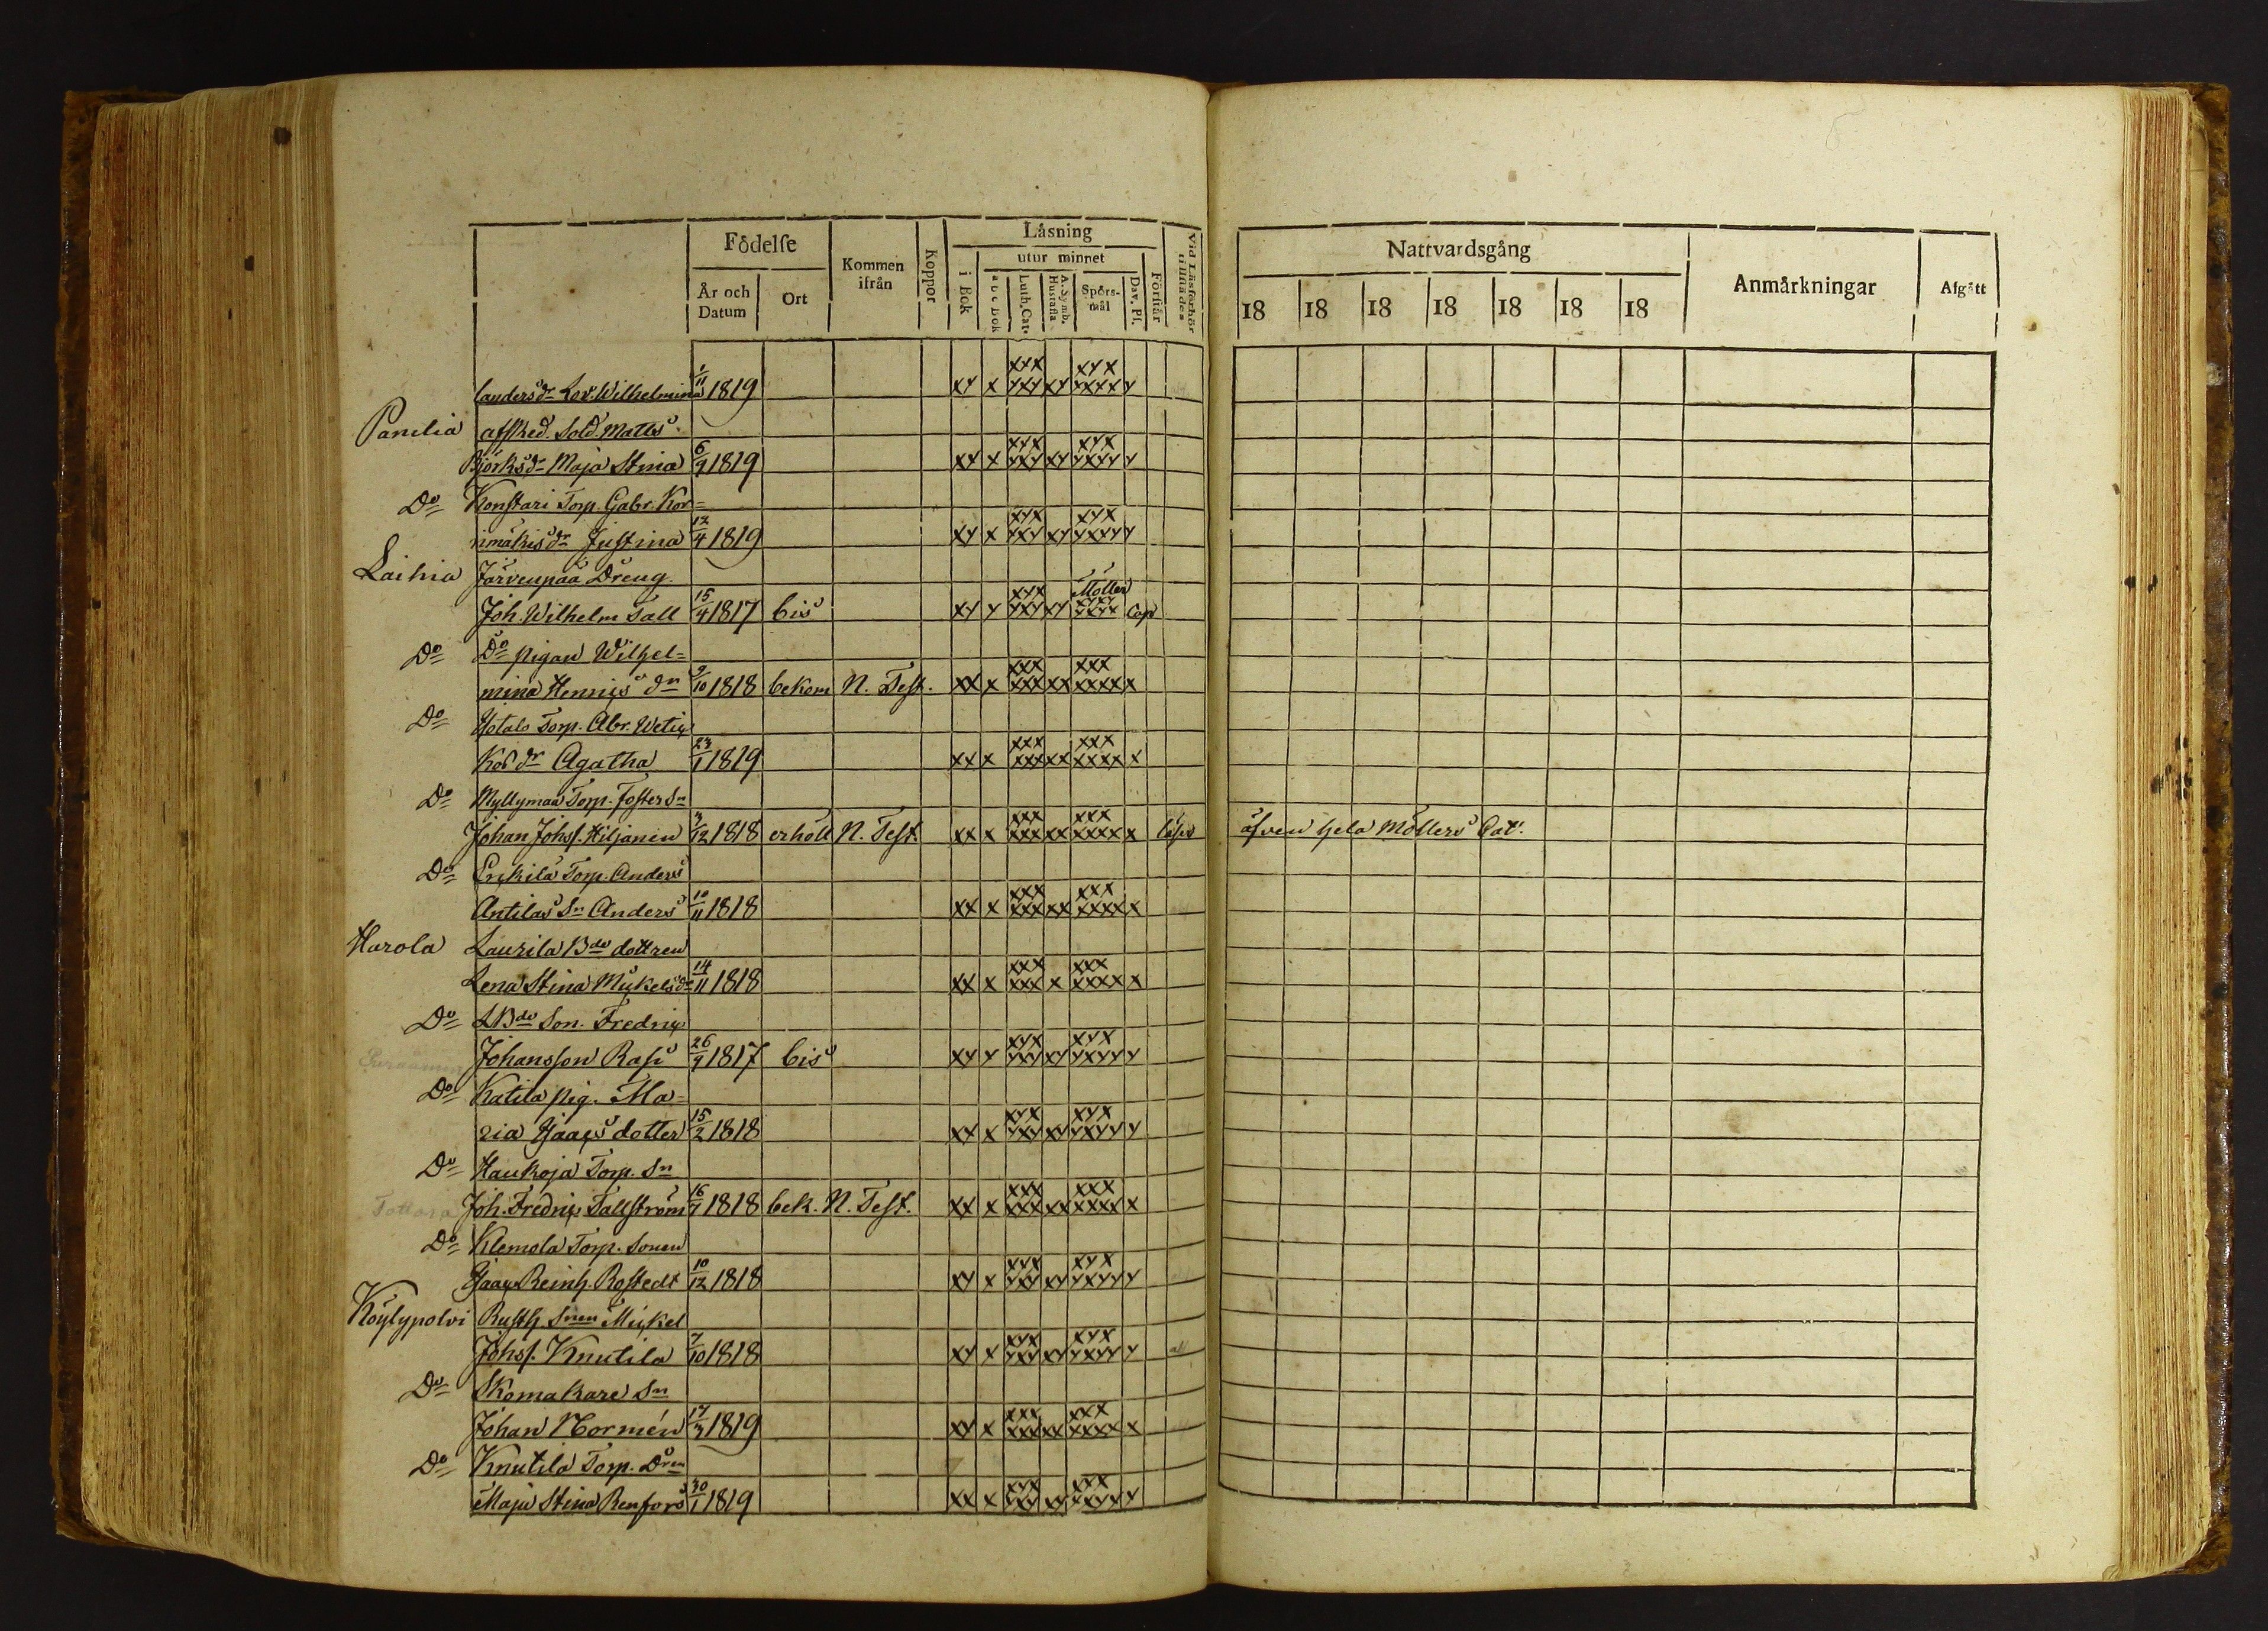 Födelse
Kommen ifrån
Koppor
Läsning
utur minnet
År och Datum
Ort
i Bok
a b c Bok
Luth. Cat.
A. Symb. Hustafla
Spörsmål
Dav. Ps.
Förstår
Vid Läsförhör tillstädes
Nattvardsgång
Anmärkningar
Afgått
18 18 18 18 18 18 18
landers dr Lov. Wilhelmina 1/11 1819 xx x xxx xxx xx xxx xxxx x
Panelia afsked. Sold. Matts
Björks dr Maja Stina 6/9 1819 xx x xxx xxx xx xxx xxxx x
Do Konstari Torp. Gabr. Kor=
nmäkis dr Justina 12/4 1819 xx x xxx xxx xx xxx xxxx x
Laihia Järvenpää Dreng
Joh. Wilhelm Tall 15/4 1817 bis xx x xxx xxx xx Möller xxxx xxxx Cap
Do Do pigan Wilhel=
mina Henrics dr 9/10 1818 bekom N. Test. xx x xxx xxx xx xxx xxxx x
Do Torp. Abr. Wetig
kos dr Agatha 23/1 1819 xx x xxx xxx xx xxx xxxx x
Do Myllymaa Torp. foster Sn
Johan Johss. Hiljanen 3/12 1818 erhöll N. Test. xx x xxx xxx xx xxx xxxx x äfven hela Möllers Cat.
Do Erikila Torp. Anders
Antilas Sn Anders 10/11 1818 xx x xxx xxx xx xxx xxxx x
Harola Laurila Bde dottren
Lena Stina Mickels dr 14/11 1818 xx x xxx xxx x xxx xxxx x
Do LBde Son. Fredric
Johansson Rasi 26/9 1817 bis xx x xxx xxx xx xxx xxxx x
Do Katila pig. Ma=
ria Isaacs dotter 15/2 1818 xx x xxx xxx xx xxx xxxx x
Do Haukoja Torp. Sn
Joh. Fredric Tallström 16/7 1818 bek. N. Test. xx x xxx xxx xx xxx xxxx x
Do Klemola Torp. Sonen
Isaac Reinh. Rostedt 10/12 1818 xx x xxx xxx xx xxx xxxx x
Köylypolvi Rusth. Snen Mickel
Johss. Knutila 7/10 1818 xx x xxx xxx xx xxx xxxx x
Do Skomakare Sn
Johan Normén 17/3 1819 xx x xxx xxx xx xxx xxxx x
Do Knutila Torp. Dren
Maja Stina Renfors 30/1 1819 xx x xxx xxx xx xxx xxxx x